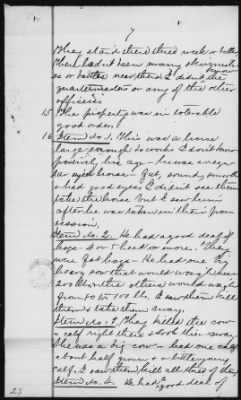 7
They staid there three week or better
There had it been many skirmish
es or battles near there I didn't know
quartermasters or any of the other
officers
15 The property was in tolerable
good order.
16 Item No. 1. This was a horse
large enough to work I don't know
positively his age - he was every
far horse - fat, sound, mouth
& had good eyes I didn't see them
take the horse but I saw him
after he was taken in their pos
session.
Item No. 2. He had a good deal of
hogs - 4 or 5 head or more. They
were fat hogs - He had one big
heavy sow that would weigh near
200 lbs the others would weigh
from 60 to 100 lbs. I saw them kill
them & take them away.
Item No. 3. They killed the cow
& calf right there & took them away.
She was a big cow - had one calf
about half grown & a little young
calf. I saw them kill all three of them
Item No. 4. He had a good deal of
23